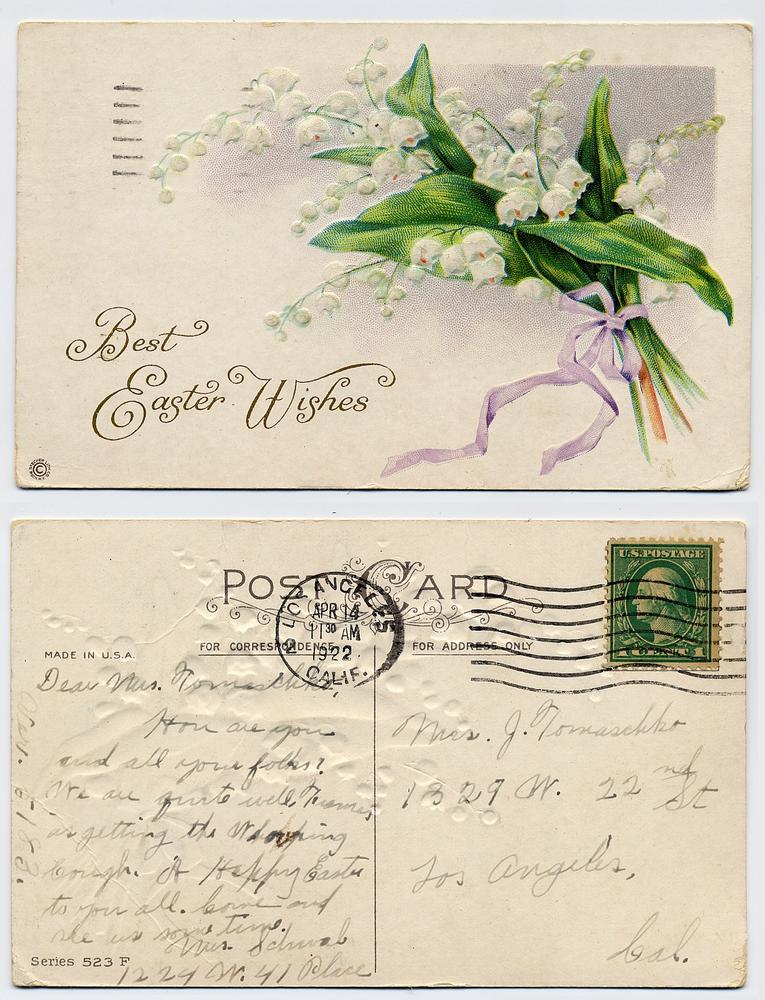 Best
Easter Wishes
©
POST CARD
LOS ANGELES
APR 14
11 30 AM
1922
CALIF.
U.S. POSTAGE
FOR CORRESPONDENCE
FOR ADDRESS ONLY
MADE IN U.S.A.
Dear Mrs. Tomaschko,
How are you
and all your folks?
We are quite well
as getting the Whooping
Cough. A Happy Easter
to you all. Come and
see us some time.
Mrs. Schwab
1224 W. 41 Place
Series 523 F
Mrs. J. Tomaschko
1329 W. 22nd St
Los Angeles,
Cal.